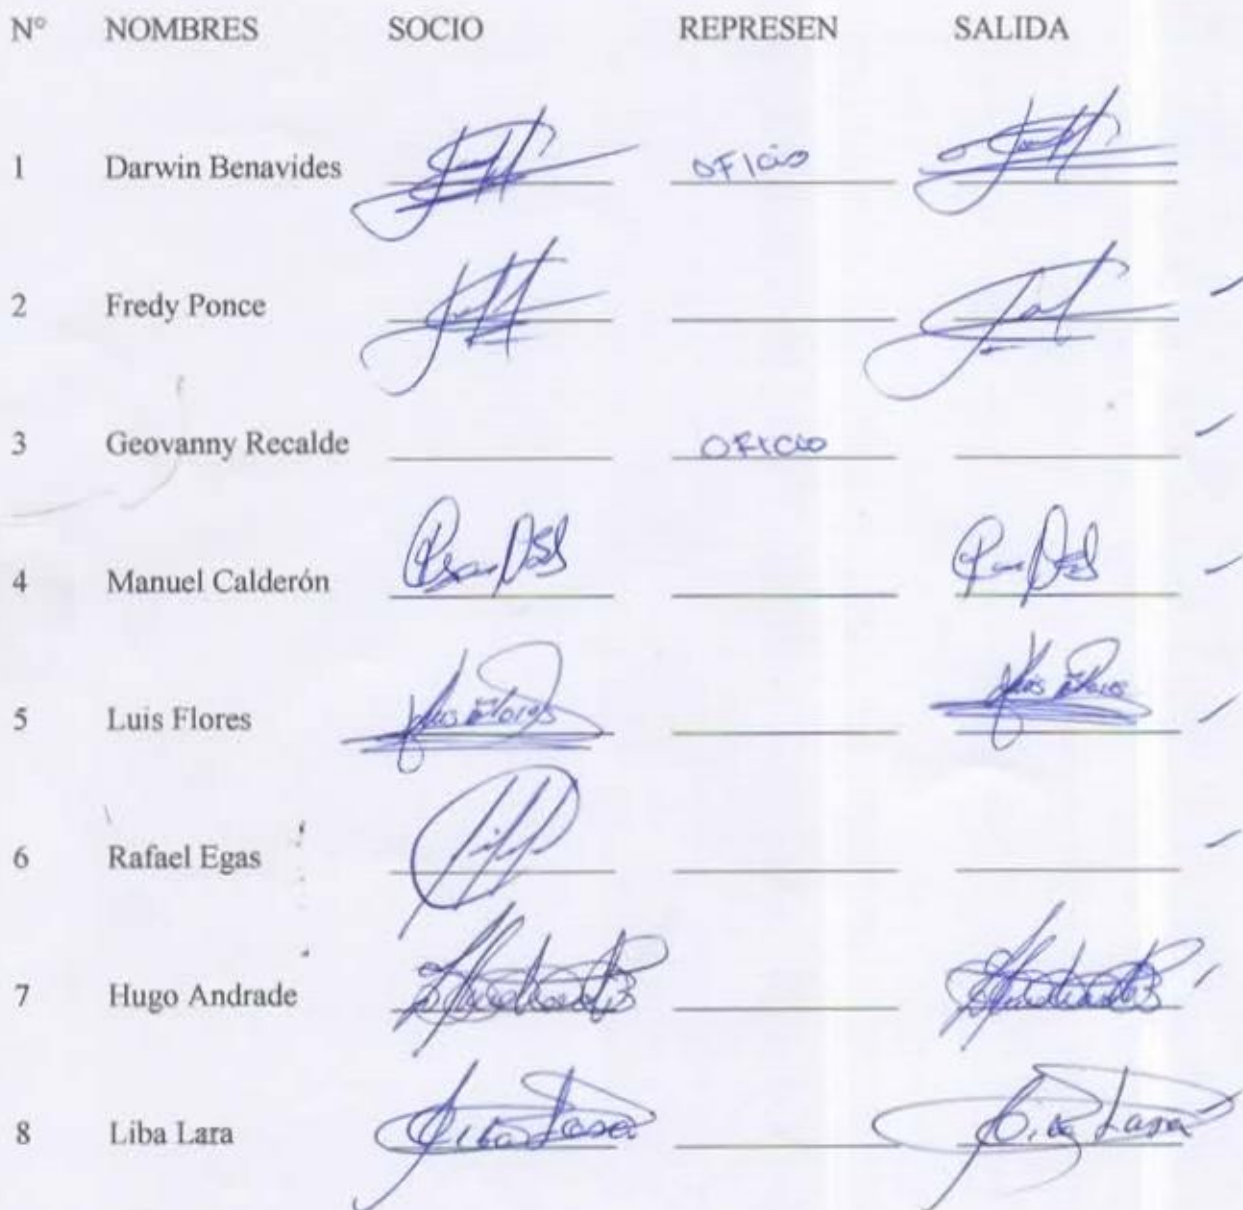 N° NOMBRES SOCIO REPRESEN SALIDA
1 Darwin Benavides OFICIO
2 Fredy Ponce
3 Geovanny Recalde OFICIO
4 Manuel Calderón
5 Luis Flores Luis Flores Luis Flores
6 Rafael Egas
7 Hugo Andrade
8 Liba Lara Liba Lara Liba Lara